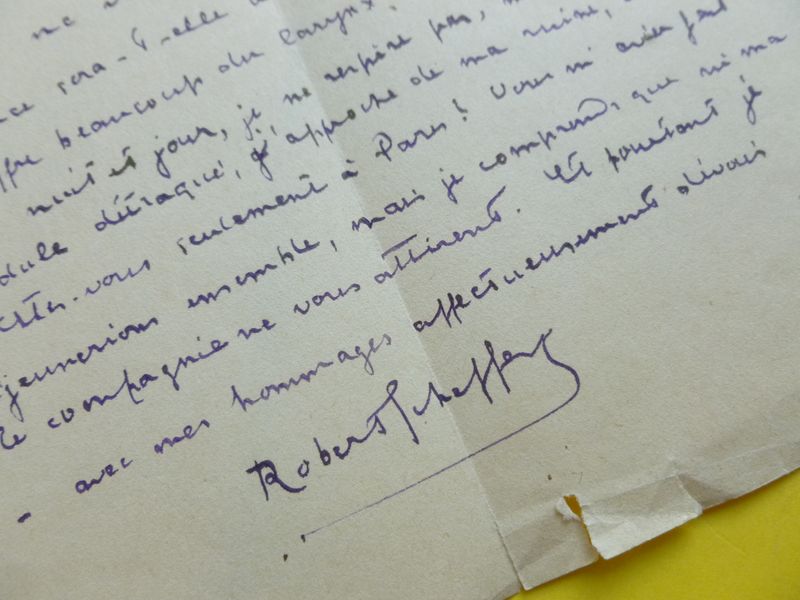 ne
sera-t-elle
beaucoup du larynx.
nuit et jour, je ne respire pas,
détraqué, j'approche de ma ruine,
vous seulement à Paris? Vous
ensemble, mais je comprends que ni ma
compagnie ne vous attirent. Et pourtant je
- avec mes hommages affectueusement dévoués
Robert Scheffer